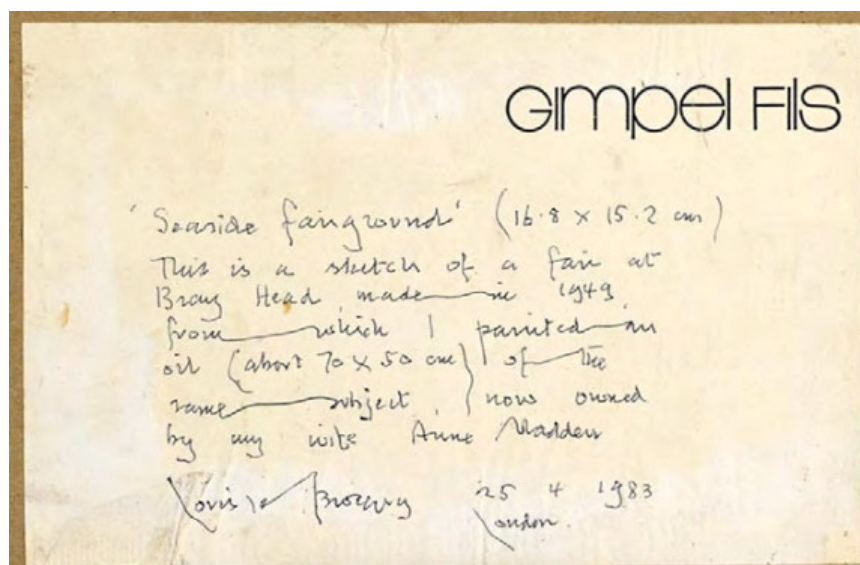 GIMPEL FILS
'Seaside fairground' (16.8 x 15.2 cms)
This is a sketch of a fair at
Bray Head made in 1949
from which I painted an
oil (about 70 x 50 cms) of the
same subject, now owned
by my wife Anne Madden
Louis le Brocquy 25 4 1983
London.